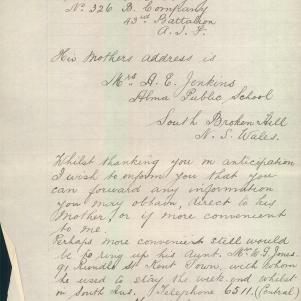 No 326 B. Company
43rd Battalion
A. I. F.
His Mothers address is
Mrs A. E. Jenkins
Alma Public School
South Broken Hill
N. S. Wales.
Whilst thanking you in anticipation
I wish to inform you that you
can forward any information
you may obtain, direct to his
Mother, or if more convenient
to me.
Perhaps more convenient still would
be to ring up his Aunt. Mrs W. G. Jones.
91 Rundle St Kent Town, with whom
he used to stay the week end whilst
in South Aus. (Telephone 6511. (Central)